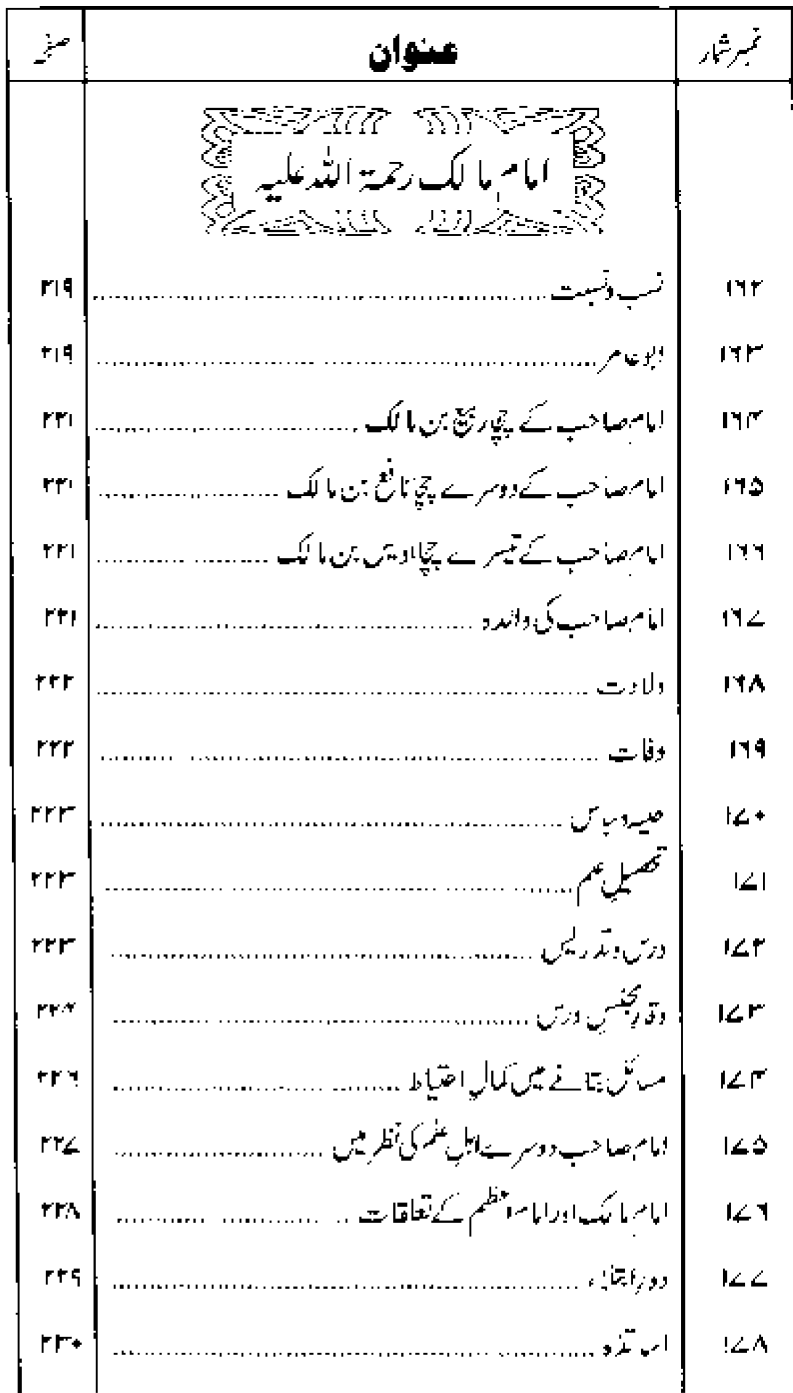 نمبر شمار عنوان صفحہ
امام مالک رحمۃ اللہ علیہ
۱۶۲ نسب ونسبت ۲۱۹
۱۶۳ ابوعامر ۲۱۹
۱۶۴ امام صاحب کے چچا ربیع بن مالک ۲۲۱
۱۶۵ امام صاحب کے دوسرے چچا نافع بن مالک ۲۲۱
۱۶۶ امام صاحب کے تیسرے چچا اویس بن مالک ۲۲۱
۱۶۷ امام صاحب کی والدہ ۲۲۱
۱۶۸ ولادت ۲۲۲
۱۶۹ وفات ۲۲۲
۱۷۰ حلیہ ولباس ۲۲۳
۱۷۱ تحصیلِ علم ۲۲۳
۱۷۲ درس وتدریس ۲۲۳
۱۷۳ وقارِ مجلسِ درس
۱۷۴ مسائل بتانے میں کمالِ احتیاط ۲۲۶
۱۷۵ امام صاحب دوسرے اہلِ علم کی نظر میں ۲۲۷
۱۷۶ امام مالک اور امام اعظم کے تعلقات ۲۲۸
۱۷۷ دورِ ابتلاء ۲۲۹
۱۷۸ اساتذہ ۲۳۰